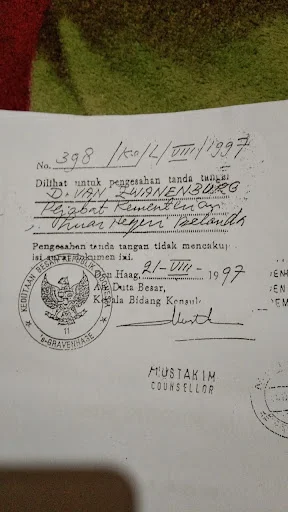 No. 398 /Ko/L/VIII/1997
Dilihat untuk pengesahan tanda tangan
D. VAN ZWANENBURG
Pejabat Kementerian
Luar Negeri Belanda
Pengesahan tanda tangan tidak mencakup
isi surat dokumen ini.
Den Haag, 21-VIII- 1997
An. Duta Besar,
Kepala Bidang Konsul
KEDUTAAN BESAR REPUBLIK
11
s-GRAVENHAGE
MUSTAKIM
COUNSELLOR